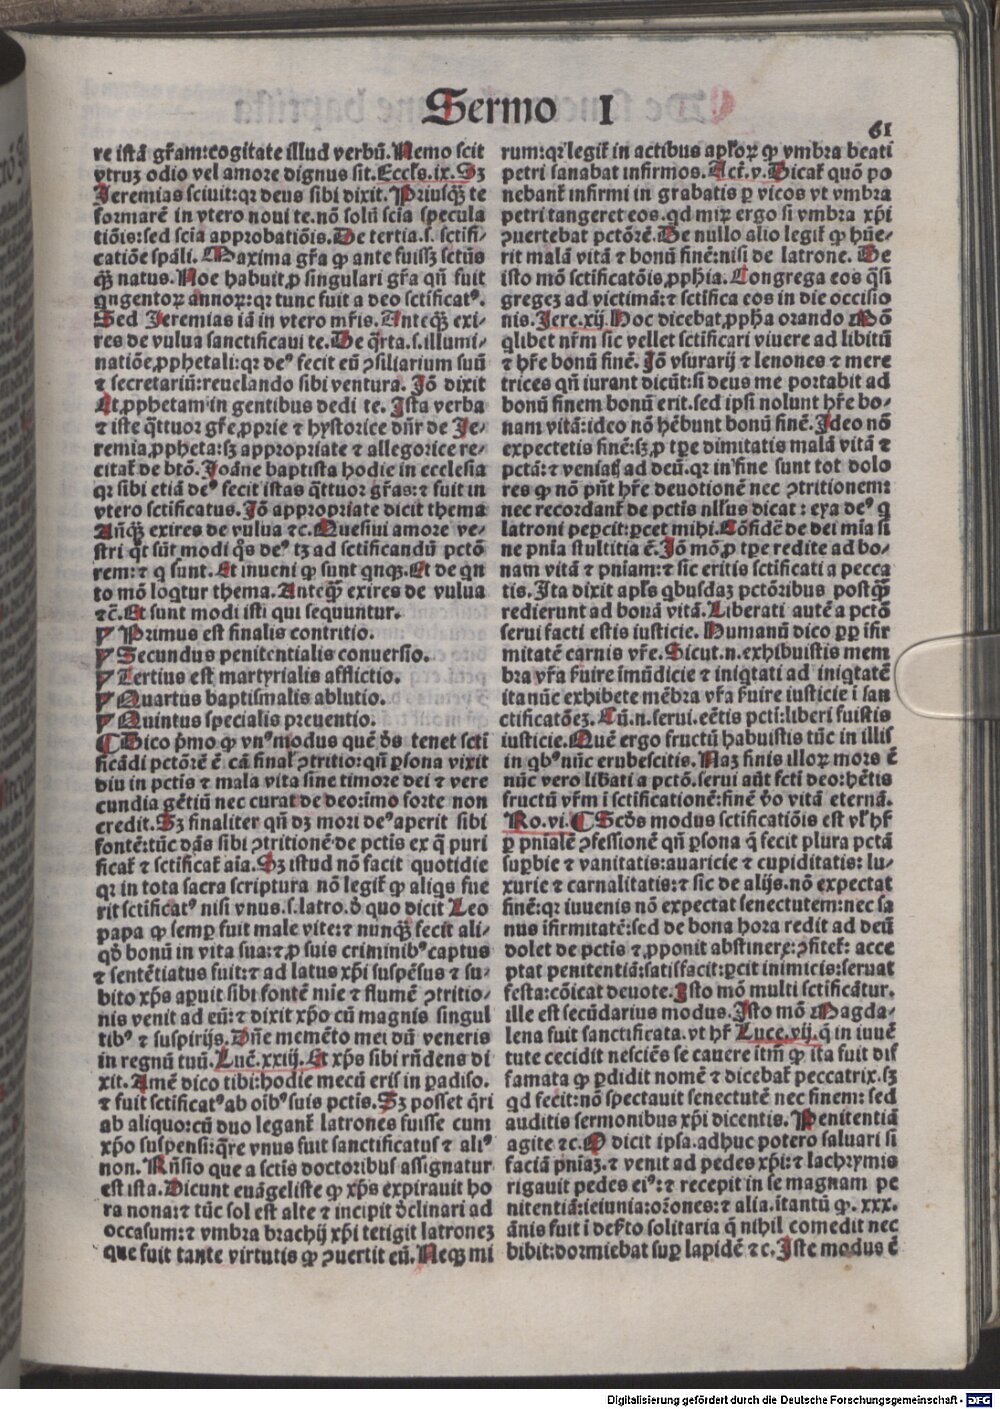 Sermo I
61
re istā gr̄am: cogitate illud verbū. Nemo scit
vtruꝫ odio vel amore dignus sit. Eccl̄s. ix. Sꝫ
Jeremias sciuit: qꝛ deus sibi dixit. Priusqꝫ te
formarē in vtero noui te. nō solū scīa specula
tiōis: sed scīa approbatiōis. De tertia. s. sctifi-
catiōe sp̄ali. Maxima gr̄a ꝙ ante fuissꝫ sctūs
qꝫ natus. Noe habuit ꝓ singulari gr̄a qn̄ fuit
qngentoꝝ annoꝝ: qꝛ tunc fuit a deo sctificatꝰ.
Sed Jeremias iā in vtero mr̄is. Anteqꝫ exi-
res de vulua sanctificaui te. De q̄rta. s. illumi-
natiōe ꝓphetali: qꝛ deꝰ fecit eū ꝯsiliarium suū
⁊ secretariū: reuelando sibi ventura. Jō dixit
Et ꝓphetam in gentibus dedi te. Ista verba
⁊ iste q̄ttuor gr̄e ꝓprie ⁊ hystorice dn̄r de Je-
remia ꝓpheta: sꝫ appropriate ⁊ allegorice re-
citat̄ de btō. Joāne baptista hodie in ecclesia
qꝛ sibi etiā deꝰ fecit istas q̄ttuor gr̄as: ⁊ fuit in
vtero sctificatus. Jō appropriate dicit thema
An̄qꝫ exires de vulua ⁊c. Quesiui amore ve-
stri q̄t sūt modi q̄s deꝰ tꝫ ad sctificandū pctō
rem: ⁊ q sunt. Et inueni ꝙ sunt qnqꝫ. Et de qn
to mō loqtur thema. Anteqꝫ exires de vulua
⁊c̄. Et sunt modi isti qui sequuntur.
Primus est finalis contritio.
Secundus penitentialis conuersio.
Tertius est martyrialis afflictio.
Quartus baptismalis ablutio.
Quintus specialis preuentio.
Dico pͥmo ꝙ vnꝰ modus quē dꝰs tenet scti
ficādi pctōrē ē cā final ꝯtritio: qn̄ ꝑsona vixit
diu in pctis ⁊ mala vita sine timore dei ⁊ vere
cundia gētiū nec curat de deo: imo forte non
credit. Sꝫ finaliter qn̄ dꝫ mori deꝰ aperit sibi
fontē: tūc dās sibi ꝯtritionē de pctis ex q̄ puri
ficat̄ ⁊ sctificat̄ aīa. Sꝫ istud nō facit quotidie
qꝛ in tota sacra scriptura nō legit̄ ꝙ aliqs fue
rit sctificatꝰ nisi vnus. s. latro. ď quo dicit Leo
papa ꝙ semꝑ fuit male vite: ⁊ nunqꝫ fecit ali-
qď bonū in vita sua: ⁊ ꝓ suis criminibꝰ captus
⁊ sentētiatus fuit: ⁊ ad latus xp̄i suspēsus ⁊ su-
bito xp̄s aꝑuit sibi fontē mīe ⁊ flumē ꝯtritio-
nis venit ad eū: ⁊ dixit xp̄o cū magnis singul
tibꝰ ⁊ suspirijs. Dn̄e memēto mei dū veneris
in regnū tuū. Luc̄. xxiij. Et xp̄s sibi rn̄dens di
xit. Amē dico tibi: hodie mecū eris in ꝑadiso.
⁊ fuit sctificatꝰ ab oībꝰ suis pctis. Sꝫ posset q̄ri
ab aliquo: cū duo legant̄ latrones fuisse cum
xp̄o suspensi: q̄re vnus fuit sanctificatus ⁊ aliꝰ
non. Rn̄sio que a sctis doctoribus assignatur
est ista. Dicunt euāgeliste ꝙ xp̄s expirauit ho
ra nona: ⁊ tūc sol est alte ⁊ incipit ďclinari ad
occasum: ⁊ vmbra brachij xp̄i tetigit latroneꝫ
que fuit tante virtutis ꝙ ꝯuertit eū. Neqꝫ mi
rum: qꝛ legit̄ in actibus apl̄oꝝ ꝙ vmbra beati
petri sanabat infirmos. Act̄. v. Dicat̄ quō po
nebant̄ infirmi in grabatis ꝑ vicos vt vmbra
petri tangeret eos. qd miꝝ ergo si vmbra xp̄i
ꝯuertebat pctōrē. De nullo alio legit̄ ꝙ hūe-
rit malā vitā ⁊ bonū finē: nisi de latrone. De
isto mō sctificatōis ꝓphīa. Congrega eos q̄si
gregeꝫ ad victimā: ⁊ sctifica eos in die occisio
nis. Jere. xij. Hoc dicebat ꝓphā orando Mō
qlibet nr̄m sic vellet sctificari viuere ad libitū
⁊ hr̄e bonū finē. Jō vsurarij ⁊ lenones ⁊ mere
trices qn̄ iurant dicūt: si deus me portabit ad
bonū finem bonū erit. sed ipsi nolunt hr̄e bo-
nam vitā: ideo nō hēbunt bonū finē. Ideo nō
expectetis finē: sꝫ ꝓ tp̄e dimitatis malā vitā ⁊
pctā: ⁊ veniatꝭ ad deū. qꝛ in fine sunt tot dolo
res ꝙ nō pn̄t hr̄e deuotionē nec ꝯtritionem:
nec recordant̄ de pctis nl̄lus dicat: eya deꝰ q
latroni peꝑcit: ꝑcet mihi. Cōfidē de dei mīa si
ne pnīa stultitia ē. Jō mō ꝓ tp̄e redite ad bo-
nam vitā ⁊ pniam: ⁊ sic eritis sctificati a pecca
tis. Ita dixit apl̄s qbusdaꝫ pctōribus postqꝫ
redierunt ad bonā vitā. Liberati autē a pctō
serui facti estis iusticie. Humanū dico ꝓꝑ īfir
mitatē carnis vr̄e. Sicut. n. exhibuistis mem
bra vr̄a ẜuire imūdicie ⁊ iniqtati ad iniqtatē
ita nūc exhibete mēbra vr̄a ẜuire iusticie ī san
ctificatōeꝫ. Cū. n. serui eētis pcti: liberi fuistis
iusticie. Quē ergo fructū habuistis tūc in illis
in qbꝰ nūc erubescitis. Naꝫ finis illoꝝ mors ē
nūc vero libati a pctō. serui aūt fcti deo: hētis
fructū vr̄m ī sctificationē: finē ꝟo vitā eternā.
Ro. vi. Secďs modus sctificatiōis est vl̄ hr̄
ꝑ pnialē ꝯfessionē qn̄ ꝑsona q̄ fecit plura pctā
suꝑbie ⁊ vanitatis: auaricie ⁊ cupiditatis: lu-
xurie ⁊ carnalitatis: ⁊ sic de alijs. nō expectat
finē: qꝛ iuuenis nō expectat senectutem: nec sa
nus īfirmitatē: sed de bona hora redit ad deū
dolet de pctis ⁊ ꝓponit abstinere: ꝯfitet̄: acce
ptat penitentiā: satisfacit: ꝑcit inimicis: seruat
festa: cōicat deuote. Isto mō multi sctificātur.
ille est secūdarius modus. Isto mō Magda-
lena fuit sanctificata. vt hr̄ Luce. vij. q̄ in iuuē
tute cecidit nesciēs se cauere itm̄ ꝙ ita fuit dif
famata ꝙ ꝑdidit nomē ⁊ dicebat̄ peccatrix. sꝫ
qd fecit: nō spectauit senectutē nec finem: sed
auditis sermonibus xp̄i dicentis. Penitentiā
agite ⁊c. O dicit ipsa. adhuc potero saluari si
faciā pniaꝫ. ⁊ venit ad pedes xp̄i: ⁊ lachrymis
rigauit pedes eiꝰ: ⁊ recepit in se magnam pe
nitentiā: ieiunia: orōnes: ⁊ alia. itantū ꝙ. xxx.
ānis fuit ī def̄to solitaria q̄ nihil comedit nec
bibit: dormiebat suꝑ lapidē ⁊c. Iste modus ē
Digitalisierung gefördert durch die Deutsche Forschungsgemeinschaft - DFG